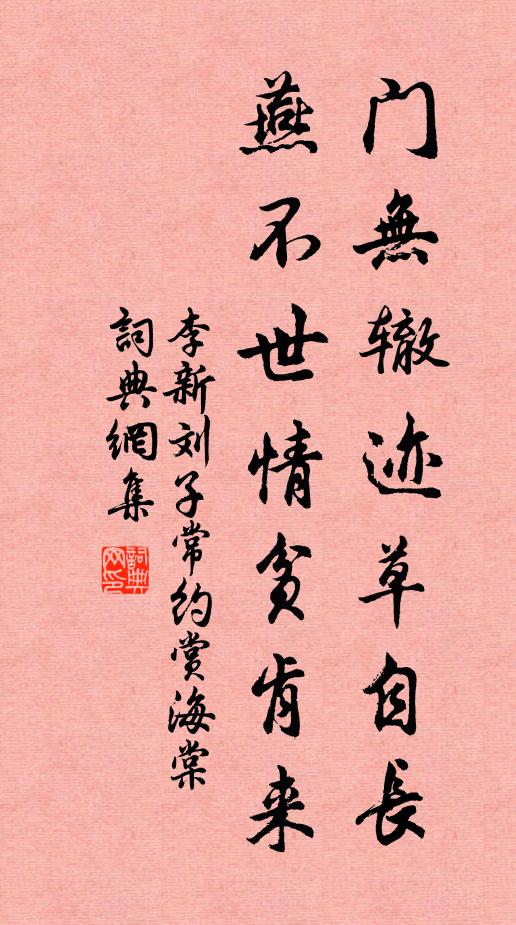 门無辙迹草自長
燕不世情貧肯来
李新刘子常约赏海棠
詞典網集
詞典網印